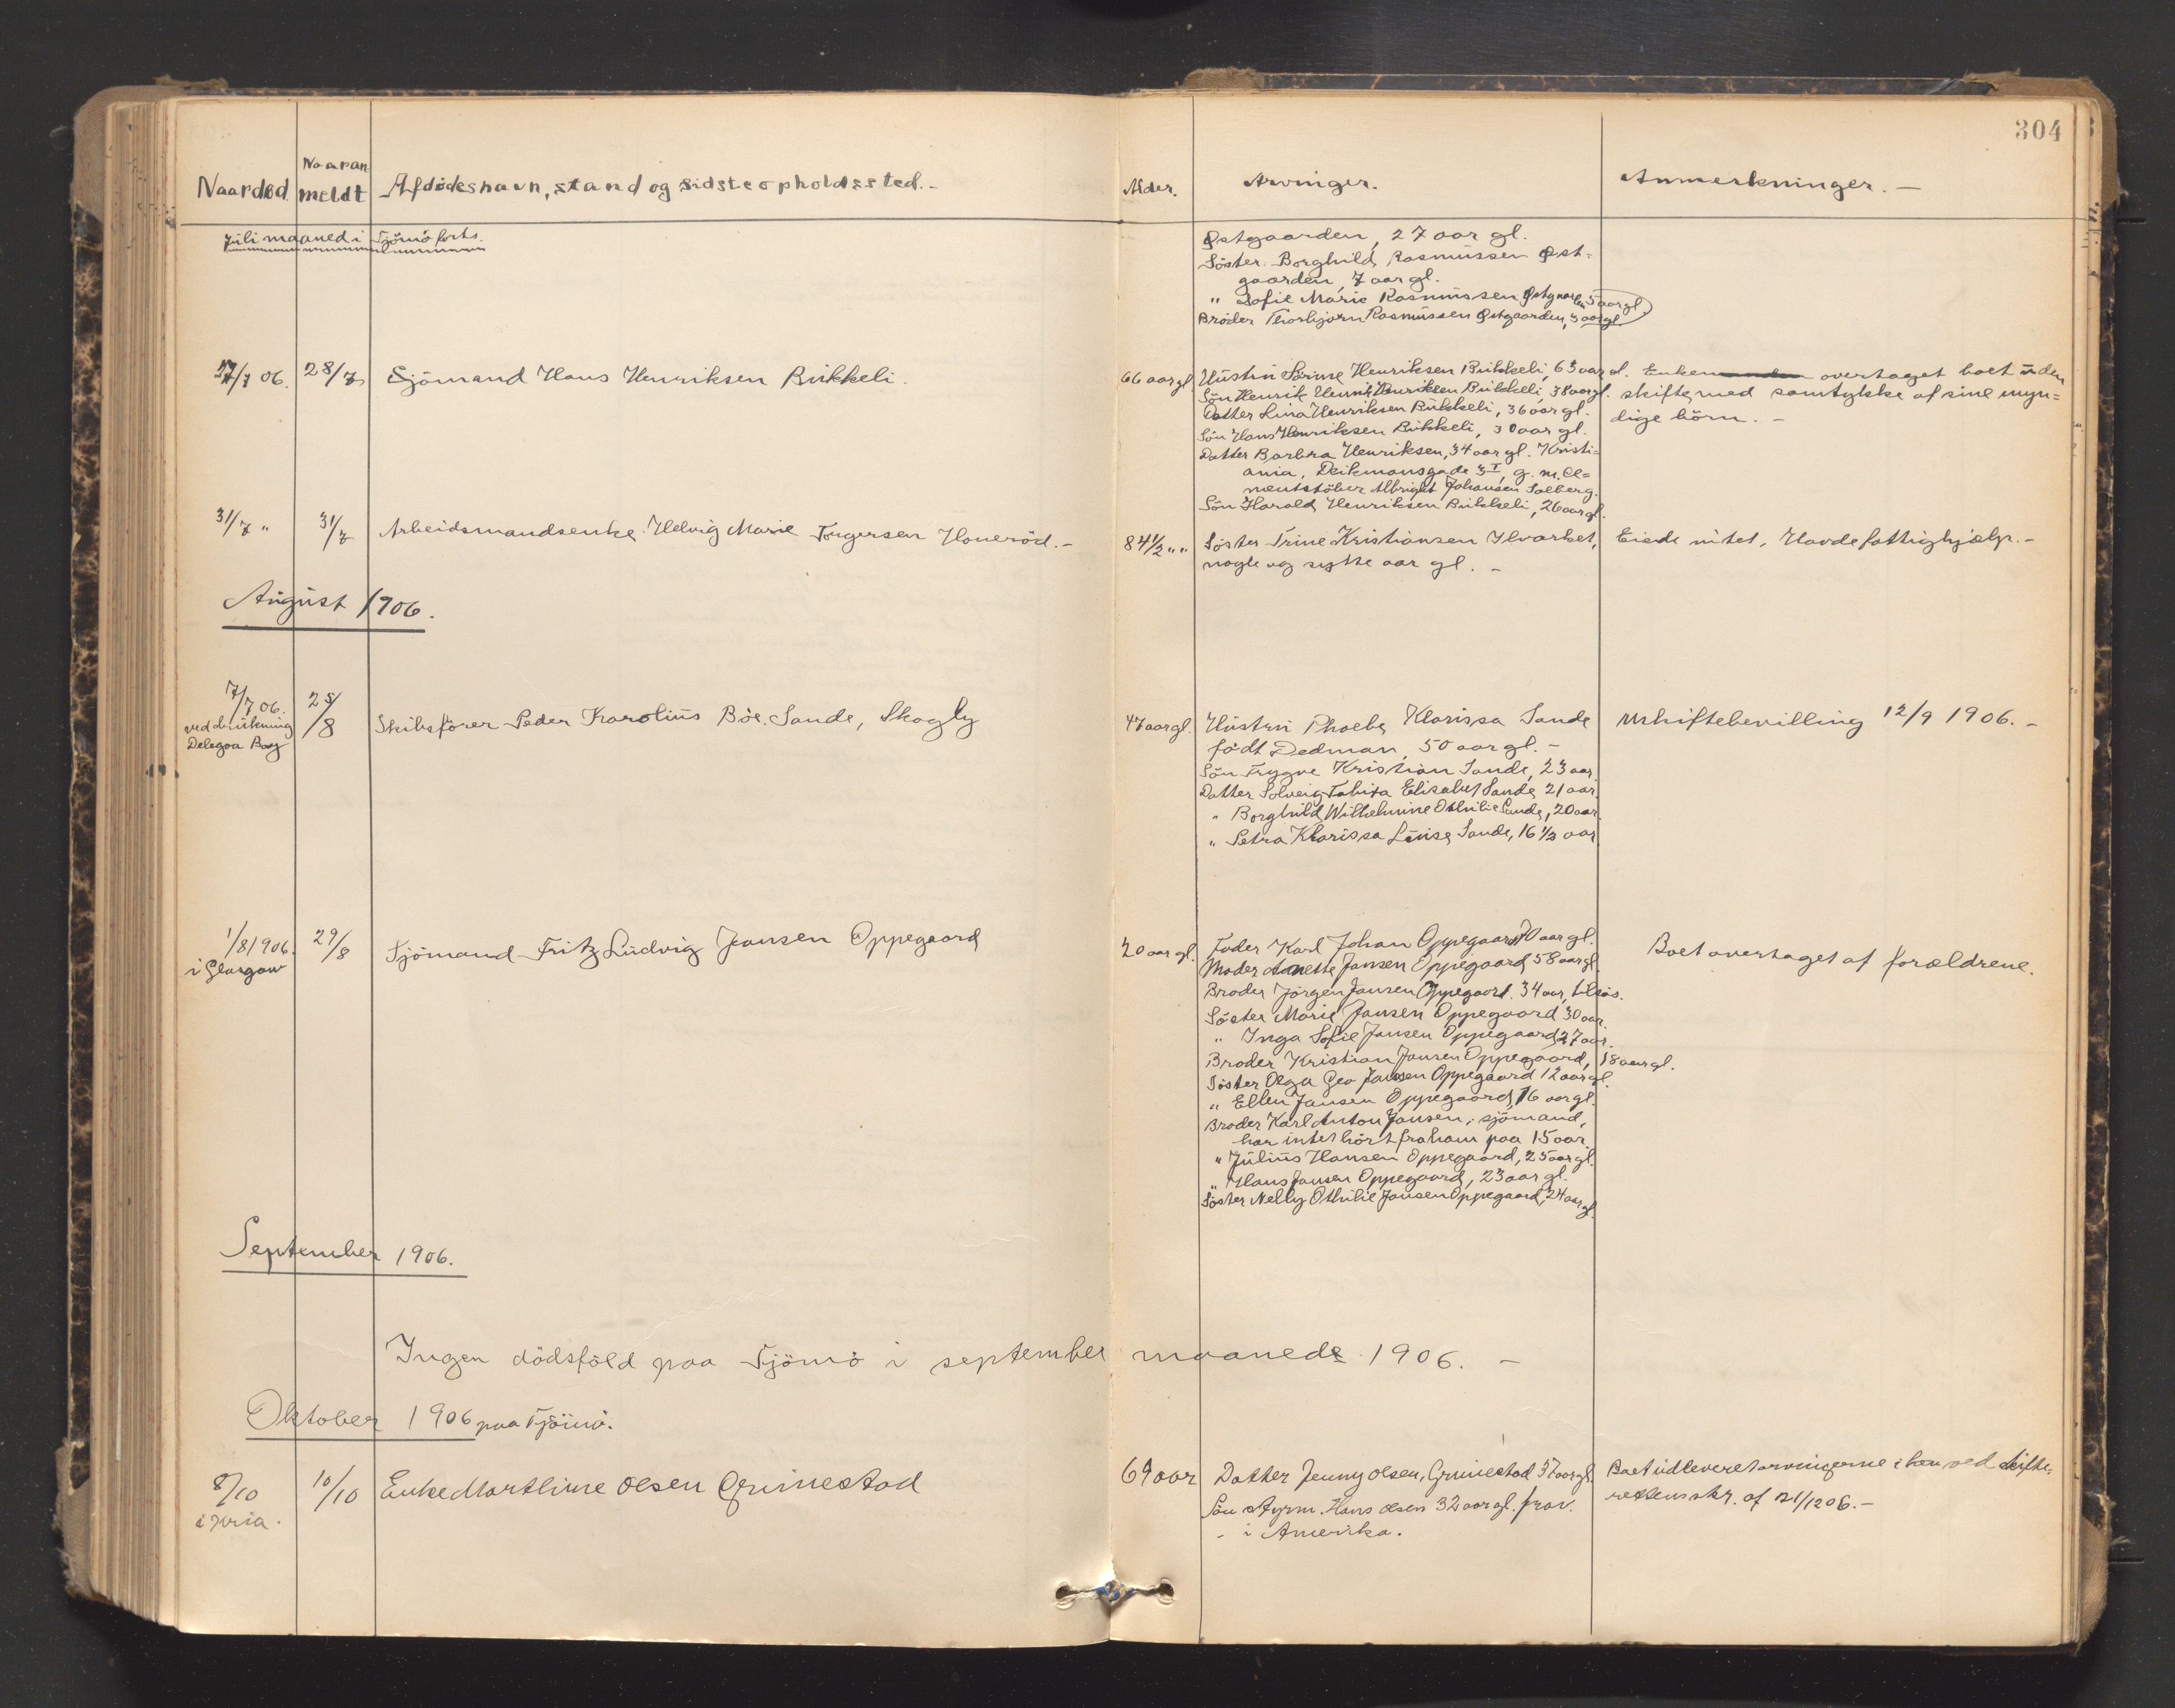 304
Naar død.
Naar an
meldt
Afdødes navn, stand og sidste opholdssted. -
Alder.
Arvinger.
Anmerkninger. -
Juli maaned i Tjömö forts.
Østgaarden, 27 aar gl.
Söster Borghild Rasmussen Øst=
gaarden, 7 aar gl.
" Sofie Marie Rasmussen Østgaarden 5 aar gl.
Broder Thorbjörn Rasmussen Østgaarden, 3 aar gl.
27/7 06.
28/7
Sjömand Hans Henriksen Bukkeli.
66 aar gl
Hustru Sörine Henriksen Bukkeli, 63 aar gl.
Sön Henrik Henriksen Bukkeli, 38 aar gl.
Datter Lina Henriksen Bukkeli, 36 aar gl.
Sön Hans Henriksen Bukkeli, 30 aar gl.
Datter Barbra Henriksen, 34 aar gl. Kristi=
ania, Deikmansgade 3 I, g. m. Ce=
mentstöber Albright Johansen Solberg.
Sön Harald Henriksen Bukkeli, 26 aar gl.
Enken overtaget boet uden
skifte med samtykke af sine myn=
dige börn. -
31/7 "
31/7
Arbeidsmandsenke Helvig Marie Torgersen Honeröd. -
84 1/2 " "
Söster Trine Kristiansen Hvarbet,
nogle og sytte aar gl. -
Eiede intet. Havde fattighjælp. -
August 1906.
7/7 06.
ved drukning
Delegoa Bay
25/8
Skibsförer Peder Karolius Böe Sande, Skogly
47 aar gl.
Hustru Phoebe Klarissa Sande
födt Dedman, 50 aar gl. -
Sön Trygve Kristian Sande, 23 aar.
Datter Solveig Tabita Elisabet Sande 21 aar.
" Borghild Wilhelmine Othilie Sande, 20 aar.
" Petra Klarissa Louise Sande, 16 1/2 aar
Uskiftebevilling 12/9 1906. -
1/8 1906.
i Glasgow
29/8
Sjömand Fritz Ludvig Jansen Oppegaard
20 aar gl.
Fader Karl Johan Oppegaard 70 aar gl.
Moder Anette Jansen Oppegaard 58 aar gl.
Broder Jörgen Jansen Oppegaard. 34 aar, tilsös.
Söster Marie Jansen Oppegaard 30 aar.
" Inga Sofie Jansen Oppegaard 27 aar.
Broder Kristian Jansen Oppegaard, 18 aar gl.
Söster Olga Geo Jansen Oppegaard 12 aar gl.
" Ellen Jansen Oppegaard, 16 aar gl.
Broder Karl Anton Jansen, sjömand,
har intet hört fra ham paa 15 aar.
" Julius Hansen Oppegaard, 25 aar gl.
" Hans Jansen Oppegaard, 23 aar gl.
Söster Nelly Othilie Jansen Oppegaard, 24 aar gl.
Boet overtaget af forældrene.
September 1906.
Ingen dödsföld paa Tjömö i september maaned 1906. -
Oktober 1906 paa Tjömö.
8/10
10/10
Enke Martline Olsen Grimestad
69 aar
Datter Jenny Olsen, Grimestad 37 aar gl.
Sön Styrm. Hans Olsen 32 aar gl. frav.
- i Amerika.
Boet udleveret arvingerne i hen. ved skifte=
rettens skr. af 21/12 06. -